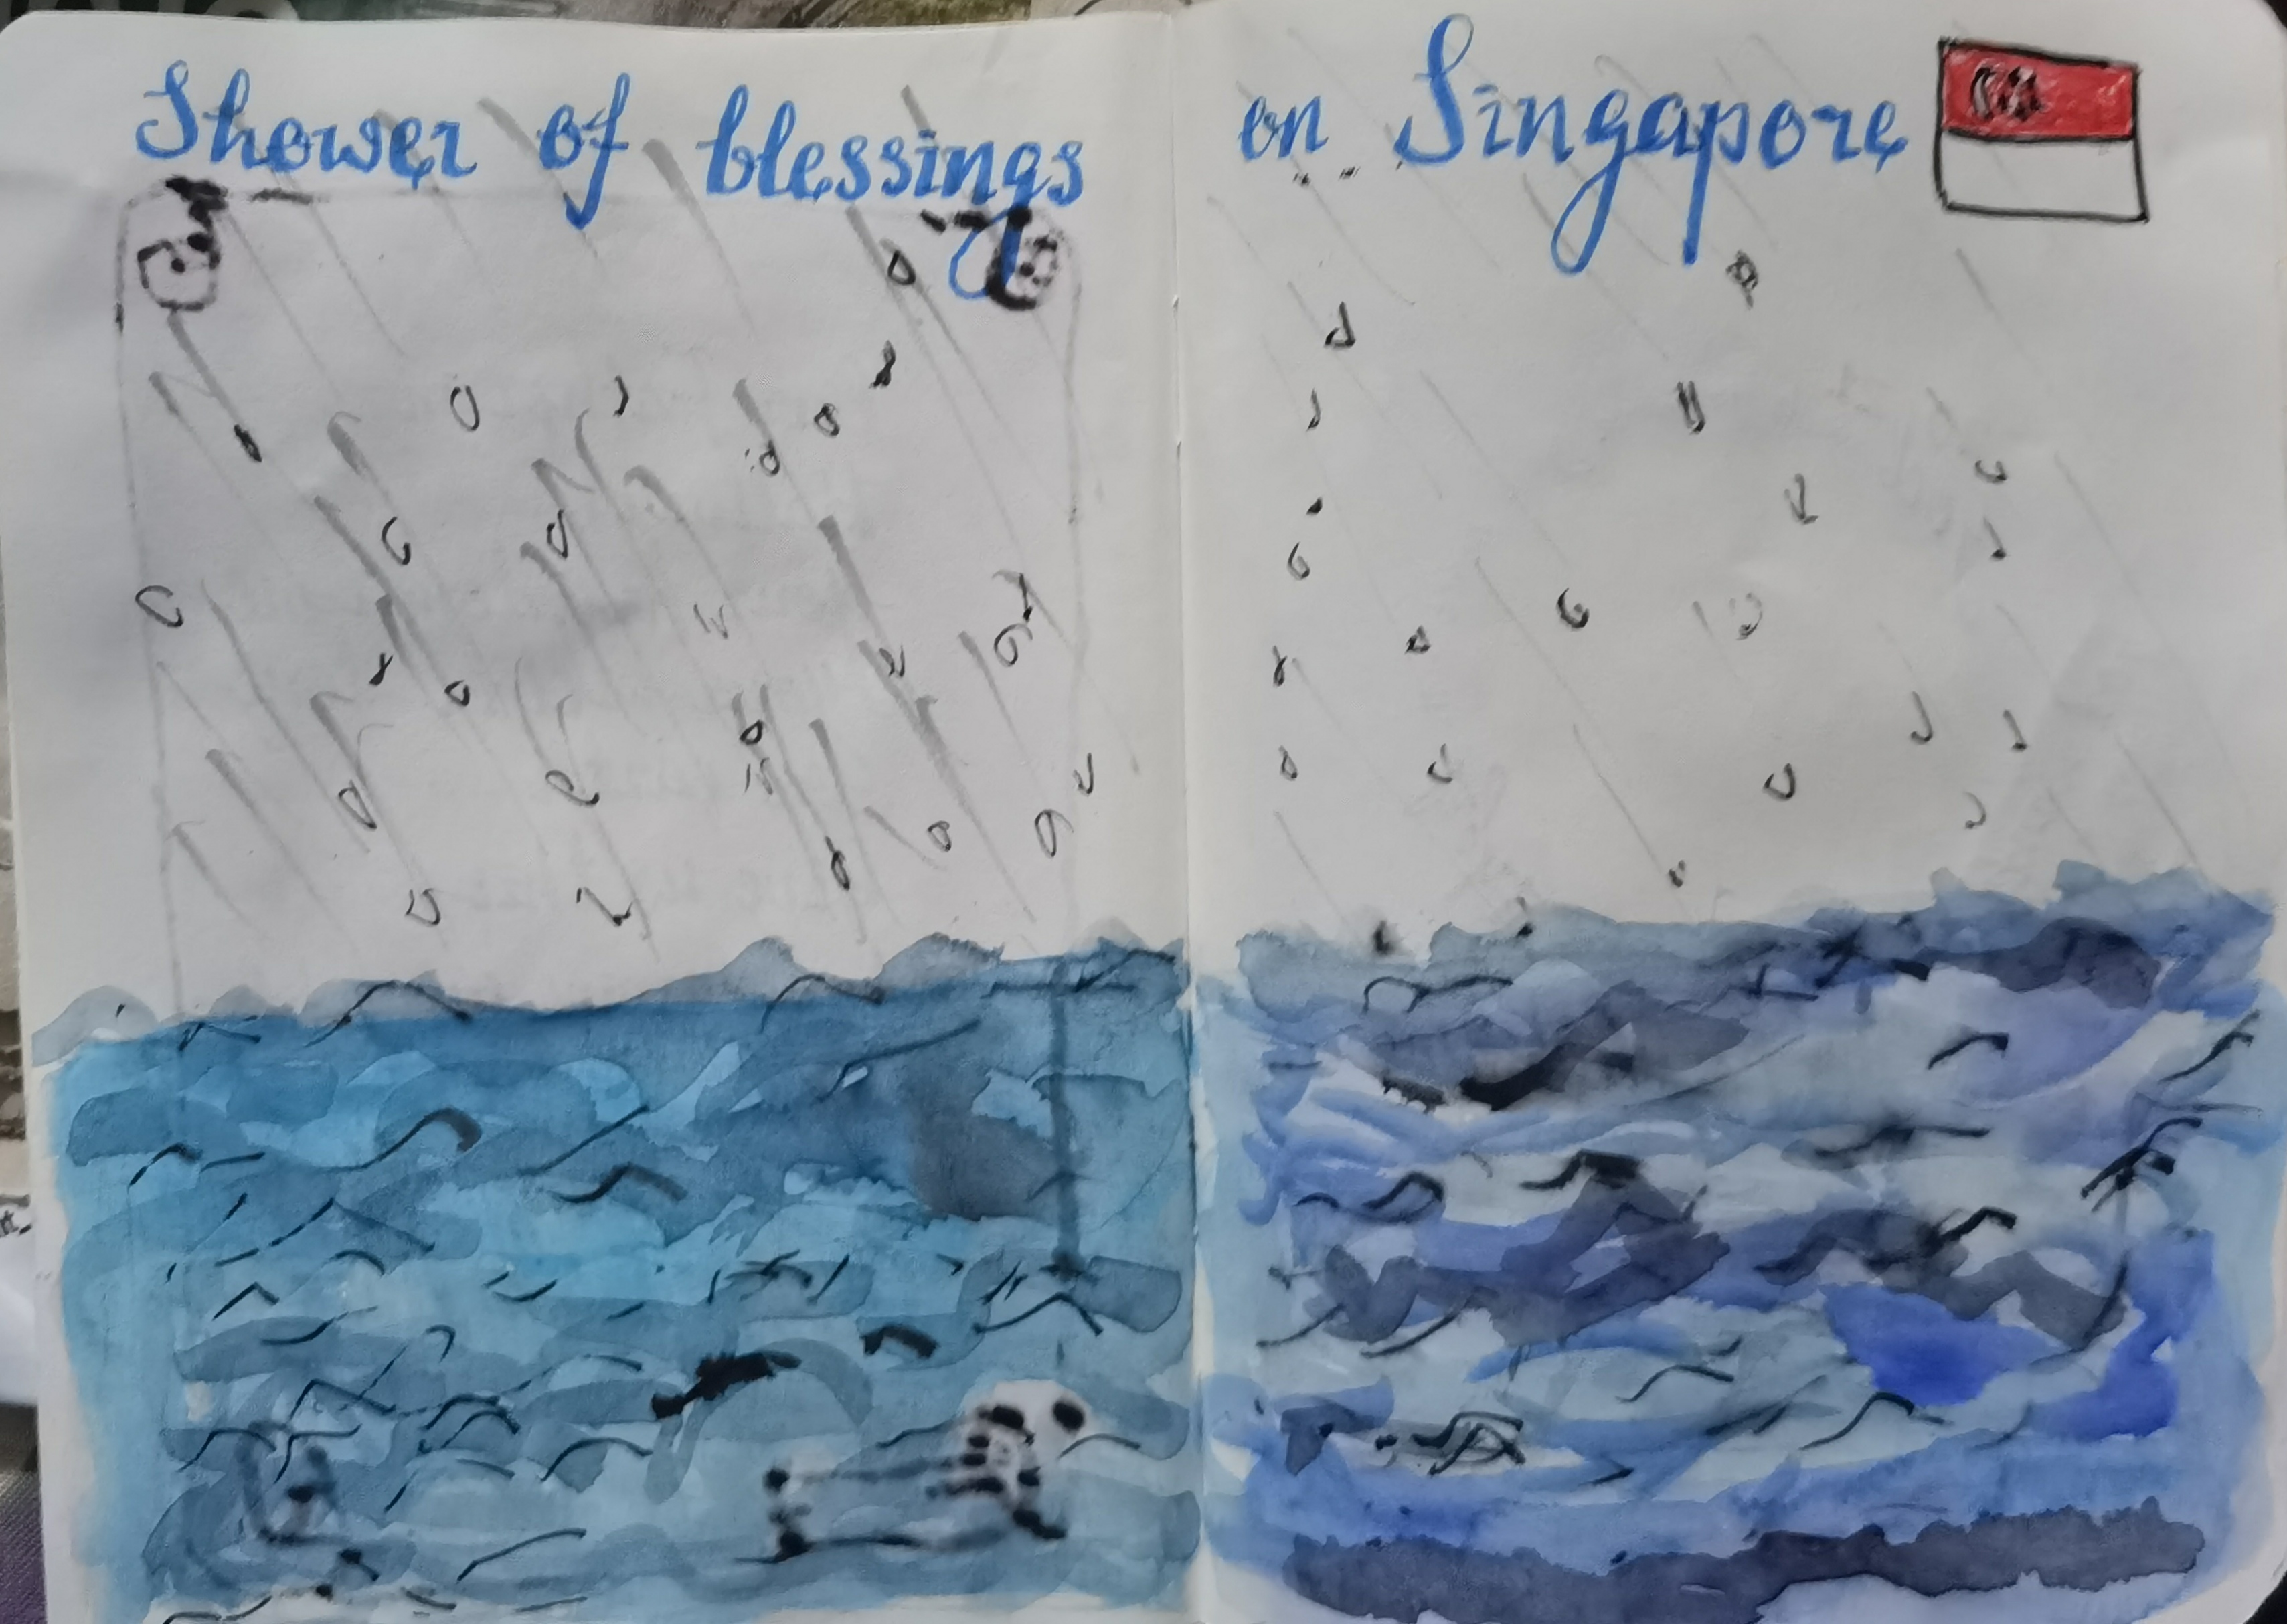 Shower of blessings on Singapore